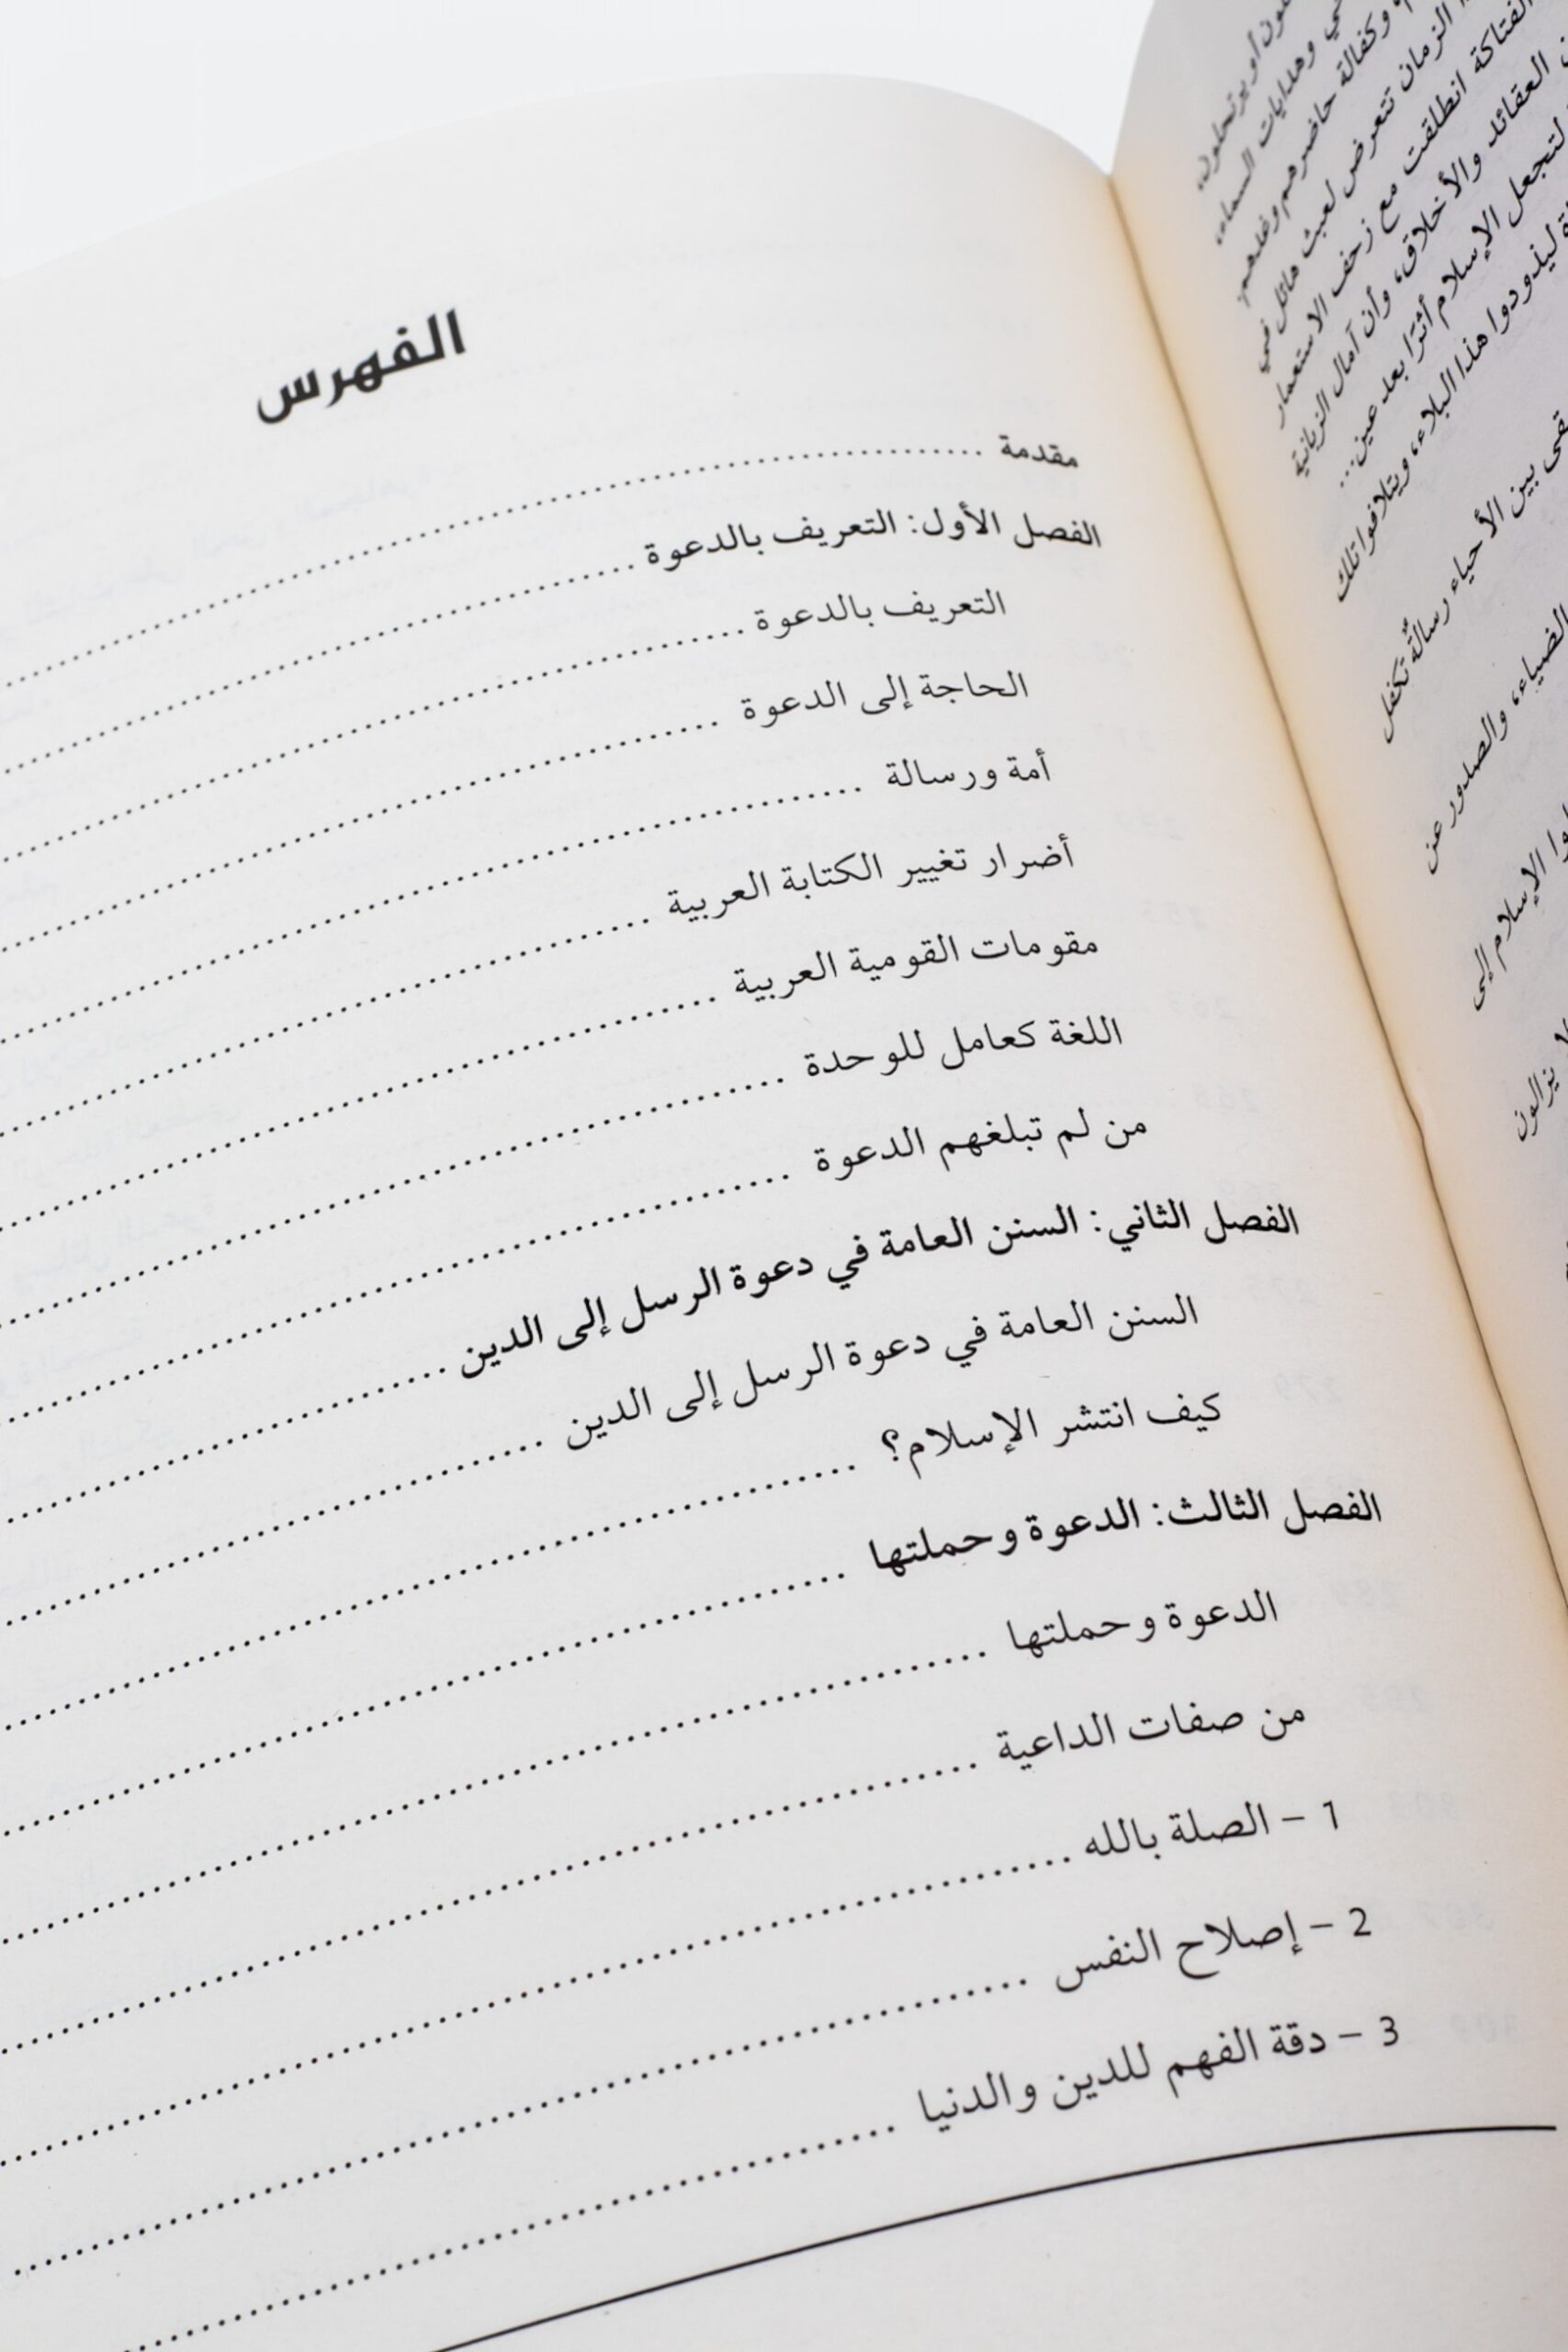 الفهرس
مقدمة
الفصل الأول: التعريف بالدعوة
التعريف بالدعوة
الحاجة إلى الدعوة
أمة ورسالة
أضرار تغيير الكتابة العربية
مقومات القومية العربية
اللغة كعامل للوحدة
من لم تبلغهم الدعوة
الفصل الثاني: السنن العامة في دعوة الرسل إلى الدين
السنن العامة في دعوة الرسل إلى الدين
كيف انتشر الإسلام؟
الفصل الثالث: الدعوة وحملتها
الدعوة وحملتها
من صفات الداعية
1 – الصلة بالله
2 – إصلاح النفس
3 – دقة الفهم للدين والدنيا
أو يرتحلون،
وهدايات السماء،
وكفالة حاضرهم وغدهم.
الزمان تتعرض لعبث هائل في
الفتاكة انطلقت مع زحف الاستعمار
العقائد والأخلاق، وأن آمال الزبانية
لتجعل الإسلام أثرًا بعد عين...
ليذودوا هذا البلاء، ويتلافوا تلك
بين الأحياء رسالةٌ تكفل
الضياء، والصدور عن
الإسلام إلى
يزالون